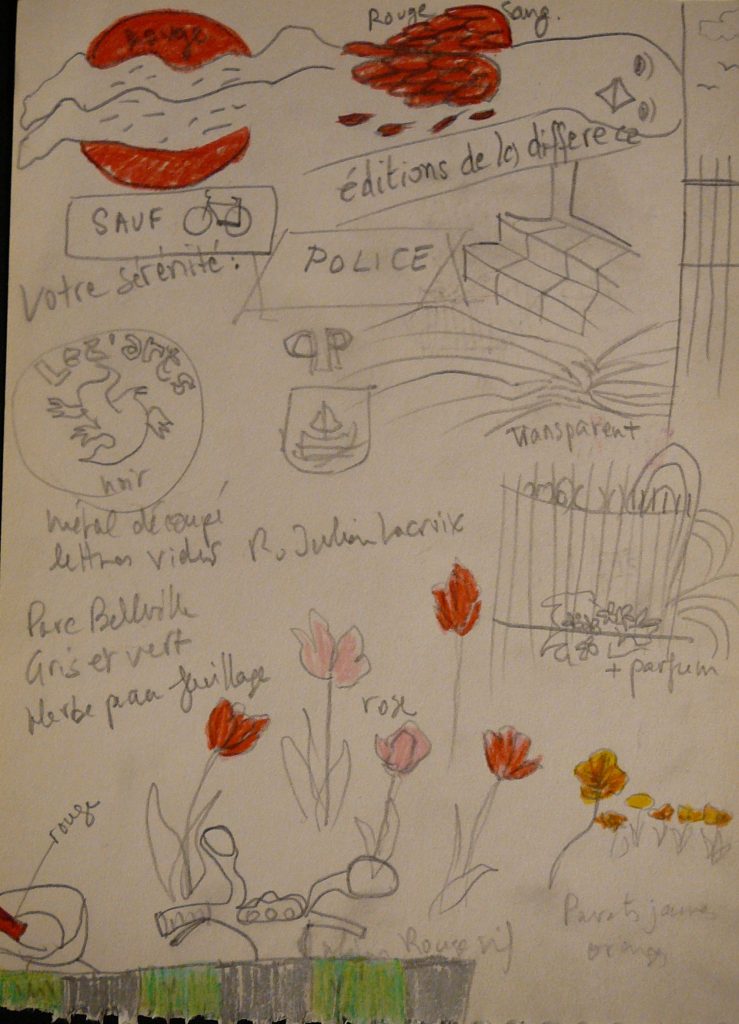 Rouge
Rouge Sang.
éditions de la differece
SAUF
Votre sérénité :
POLICE
Lez'arts
noir
métal découpé
lettres vides R. Julien Lacroix
transparent
Parc Bellville
Gris et vert
Herbe feuillage
+ parfum
rose
rouge
Pavots jaunes
oranges
Rouge vif